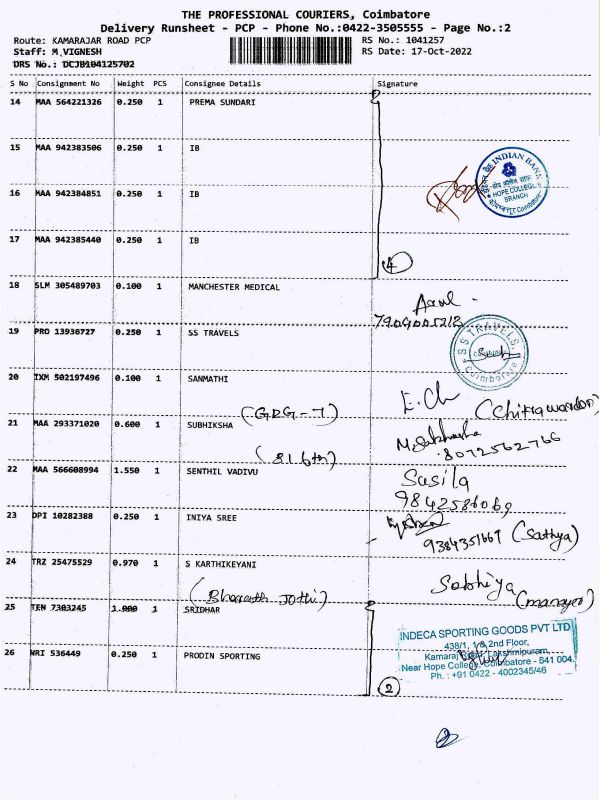 THE PROFESSIONAL COURIERS, Coimbatore
Delivery Runsheet - PCP - Phone No.:0422-3505555 - Page No.:2
Route: KAMARAJAR ROAD PCP RS No.: 1041257
Staff: M.VIGNESH RS Date: 17-Oct-2022
DRS No.: DCJB104125702
S No Consignment No Weight PCS Consignee Details Signature
14 MAA 564221326 0.250 1 PREMA SUNDARI
15 MAA 942383506 0.250 1 IB
INDIAN BANK
HOPE COLLEGE
BRANCH
Coimbatore
16 MAA 942384851 0.250 1 IB
17 MAA 942385440 0.250 1 IB
4
18 SLM 305489703 0.100 1 MANCHESTER MEDICAL
19 PRO 13936727 0.250 1 SS TRAVELS
S S TRAVELS
Coimbatore
20 IXM 502197496 0.100 1 SANMATHI
(GRG-7)
21 MAA 293371020 0.600 1 SUBHIKSHA
8072562766
(8.1.6th)
22 MAA 566608994 1.550 1 SENTHIL VADIVU
Susila
9842586069
23 DPI 10282388 0.250 1 INIYA SREE
9384351667 (Sathya)
24 TRZ 25475529 0.970 1 S KARTHIKEYANI
Sobhiya
(manager)
(Bharath Jothi)
25 TEN 7303245 1.000 1 SRIDHAR
26 WRI 536449 0.250 1 PRODIN SPORTING
INDECA SPORTING GOODS PVT LTD
438/1, 1 & 2nd Floor,
Kamaraj Road, Lakshmipuram,
Near Hope College, Coimbatore - 641 004.
Ph. : +91 0422 - 4002345/46
2